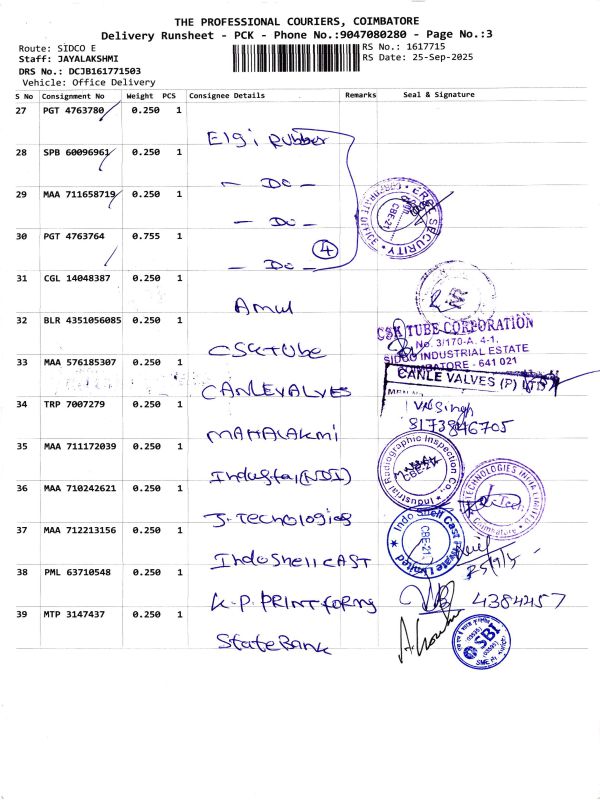 THE PROFESSIONAL COURIERS, COIMBATORE
Delivery Runsheet - PCK - Phone No.:9047080280 - Page No.:3
Route: SIDCO E
Staff: JAYALAKSHMI
DRS No.: DCJB161771503
Vehicle: Office Delivery
RS No.: 1617715
RS Date: 25-Sep-2025
S No Consignment No Weight PCS Consignee Details Remarks Seal & Signature
27 PGT 4763780 0.250 1 Elgi Rubber
28 SPB 60096961 0.250 1 - Do -
29 MAA 711658719 0.250 1 - Do -
30 PGT 4763764 0.755 1 - Do -
4
SECURITY
CORPORATE OFFICE
CBE-21
31 CGL 14048387 0.250 1 Amul
32 BLR 4351056085 0.250 1 CSK Tube
CSK TUBE CORPORATION
No. 3/170-A, 4-1,
SIDCO INDUSTRIAL ESTATE
COIMBATORE - 641 021
33 MAA 576185307 0.250 1 CANLEVALVES
CANLE VALVES (P) LTD
34 TRP 7007279 0.250 1 MAHALAKMI
35 MAA 711172039 0.250 1 Industrial (NDI)
Industrial Radiographic Inspection Co.
CBE-21
36 MAA 710242621 0.250 1 J. Tecnologies
TECHNOLOGIES INDIA LIMITED
Coimbatore
37 MAA 712213156 0.250 1 Indo Shell CAST
Indo Shell Cast Private Limited
CBE-21.
38 PML 63710548 0.250 1 K.P. PRINT forms
4384257
39 MTP 3147437 0.250 1 State Bank
SBI